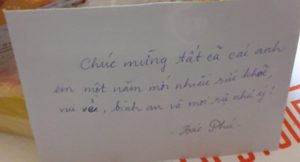 Chúc mừng tất cả các anh
em một năm mới nhiều sức khoẻ,
vui vẻ, bình an và mọi sự như ý!
- Bác Phú -